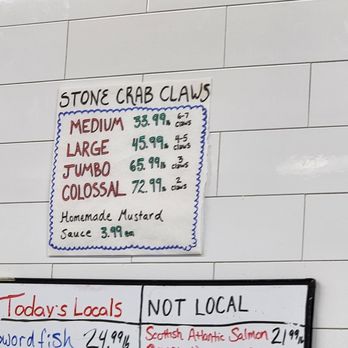 STONE CRAB CLAWS
MEDIUM 33.99lb 6-7 claws
LARGE 45.99lb 4-5 claws
JUMBO 65.99lb 3 claws
COLOSSAL 72.99lb 2 claws
Homemade Mustard
Sauce 3.99 ea
Today's Locals
swordfish 24.99/lb
NOT LOCAL
Scottish Atlantic Salmon 21.99/lb